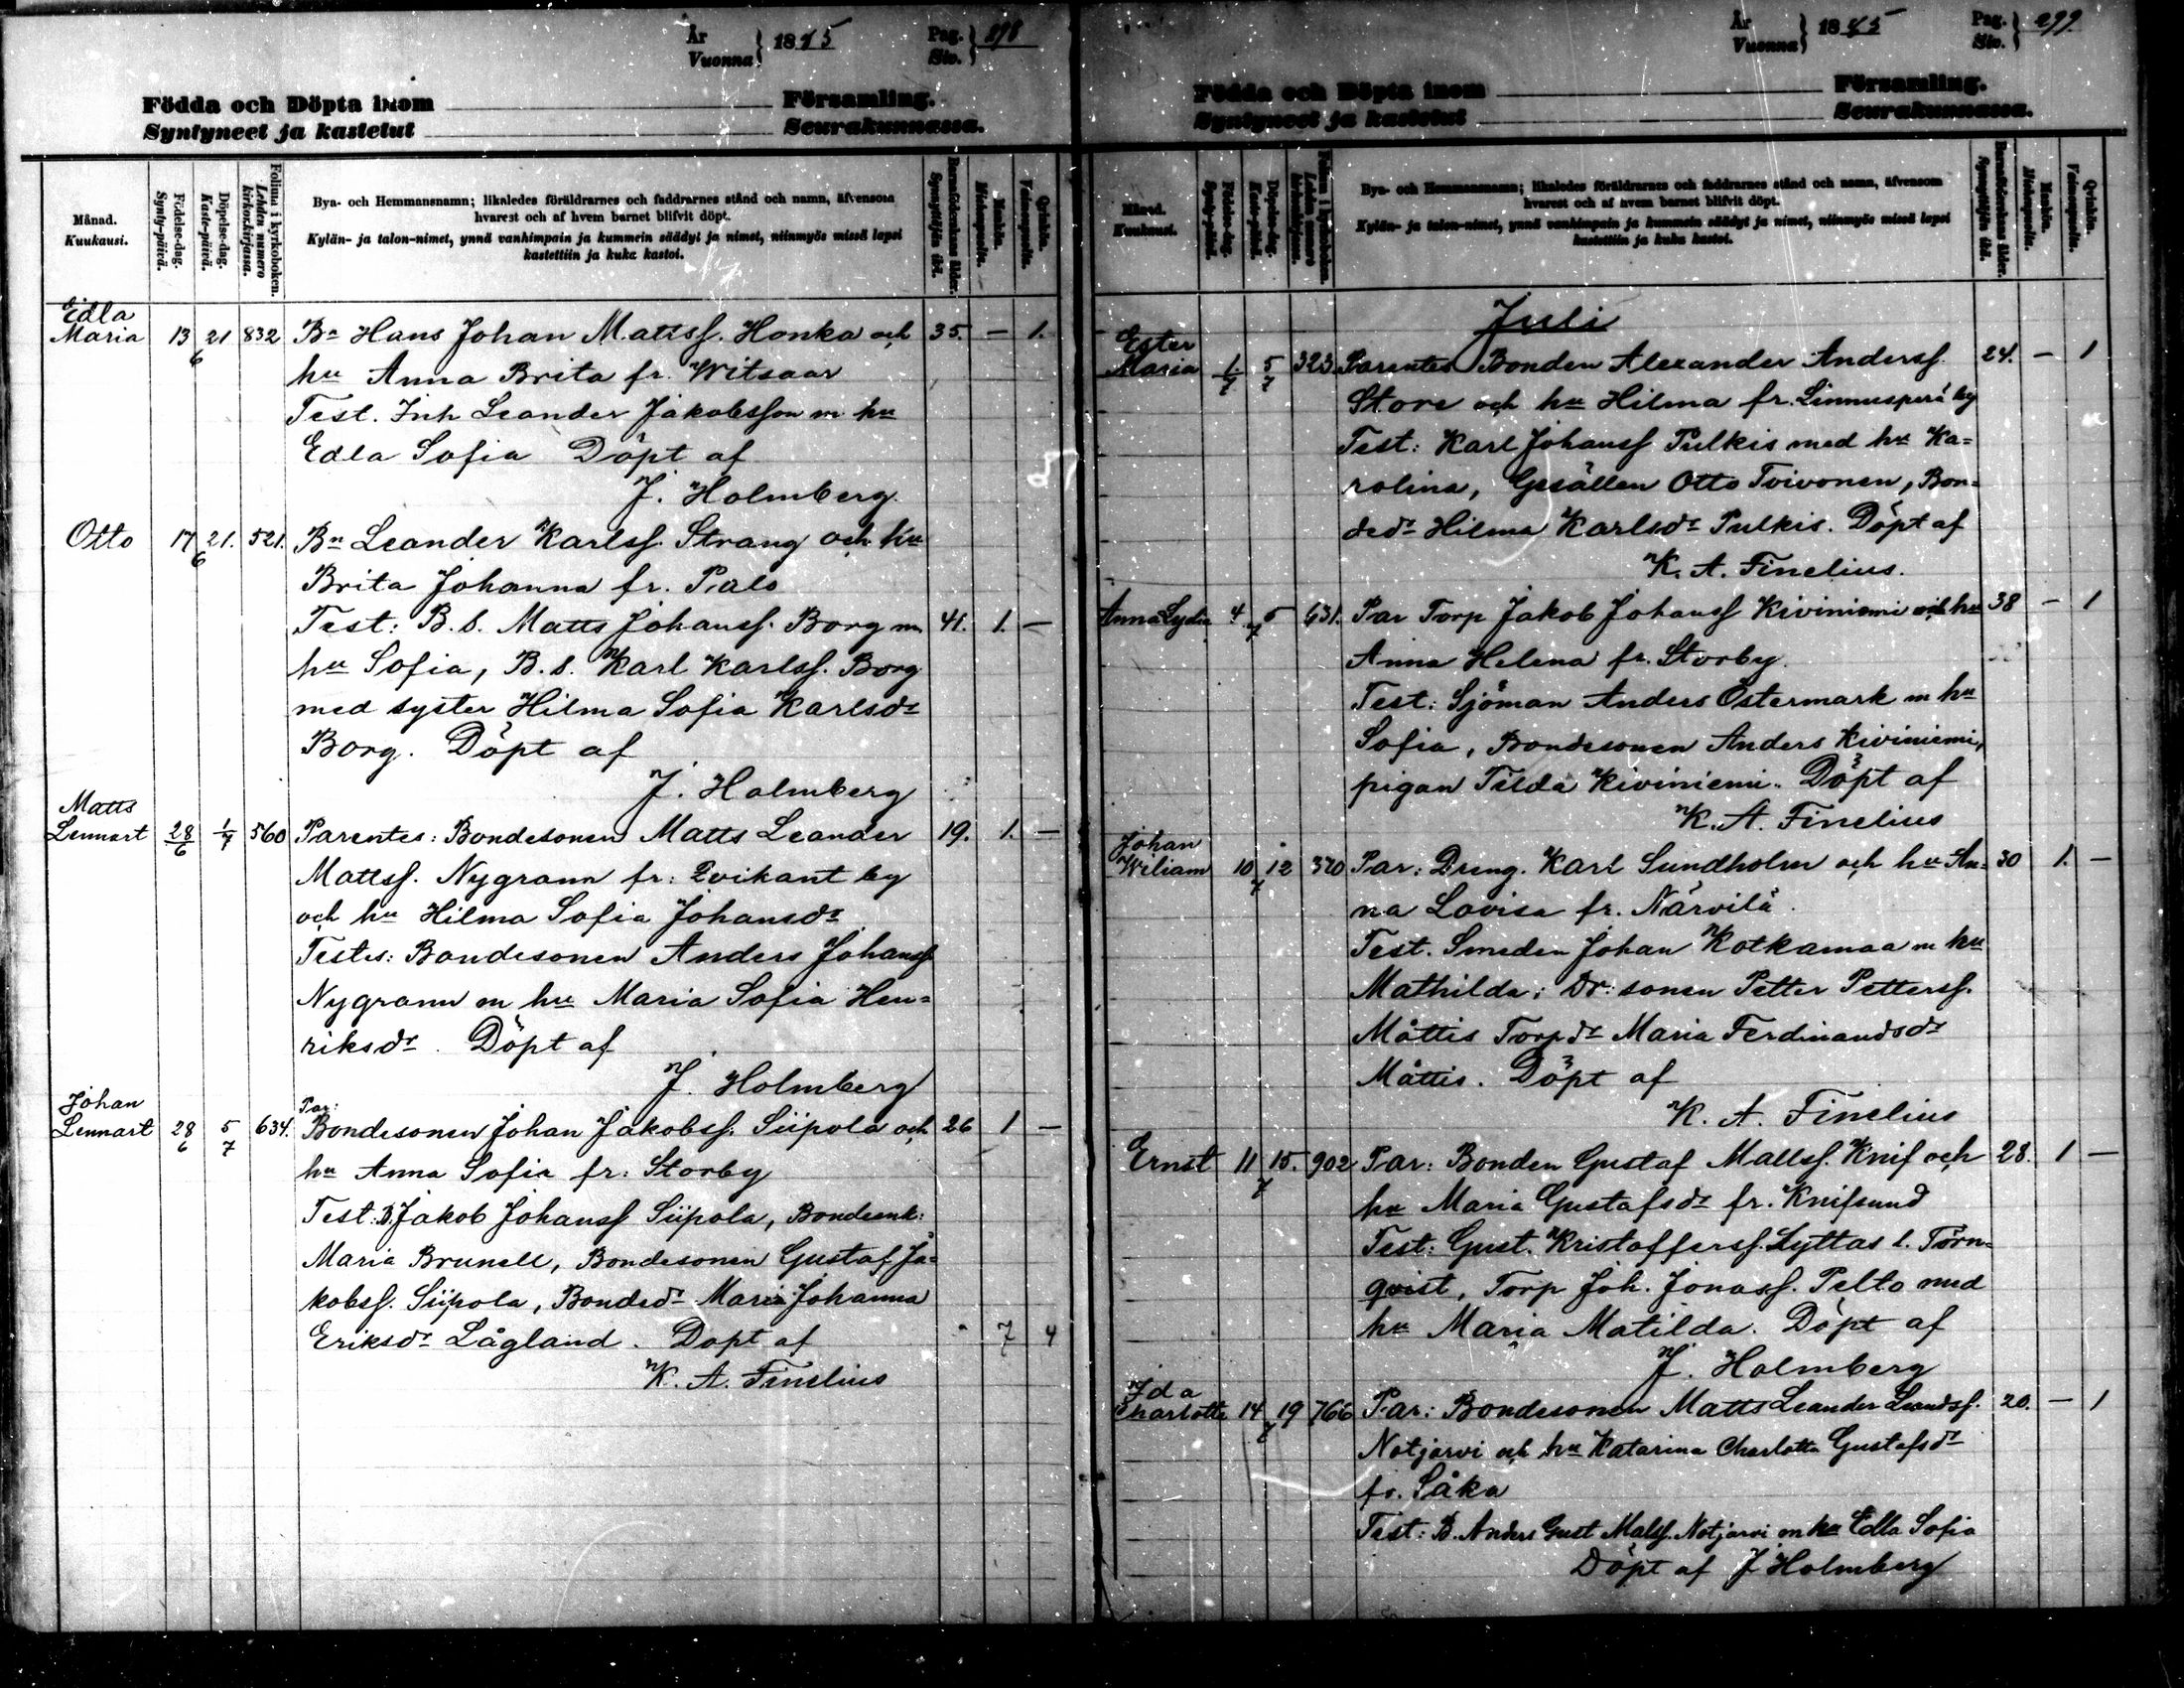 År
Vuonna } 1885 Pag. Siv. } 298
Födda och Döpta inom Församling.
Syntyneet ja kastetut Seurakunnassa.
Månad. Kuukausi.
Födelse-dag. Synty-päivä.
Döpelse-dag. Kaste-päivä.
Folium i kyrkoboken. Lehden numero kirkonkirjassa.
Bya- och Hemmansnamn; likaledes föräldrarnes och faddrarnes stånd och namn, äfvensom
hvarest och af hvem barnet blifvit döpt.
Kylän- ja talon-nimet, ynnä vanhimpain ja kummein säädyt ja nimet, niinmyös missä lapsi
kastettiin ja kuka kastoi.
Barnföderskans ålder. Synnyttäjän ikä.
Mankön. Miehenpuolia.
Qvinkön. Vaimonpuolia.
Edla
Maria 13/6 21 832 Bn Hans Johan Mattss. Honka och 35. — 1.
hu Anna Brita fr. Witsaar
Test. Inh Leander Jakobsson m hu
Edla Sofia Döpt af
J. Holmberg.
Otto 17/6 21. 521. Bn Leander Karlss. Strang och hu
Brita Johanna fr. Palo
Test: B.s. Matts Johanss. Borg m 41. 1. —
hu Sofia, B.s. Karl Karlss. Borg
med syster Hilma Sofia Karlsdr
Borg. Döpt af
J. Holmberg
Matts
Lennart 28/6 1/7 560 Parentes: Bondesonen Matts Leander 19. 1. —
Mattss. Nygrann fr: Qvikant by
och hu Hilma Sofia Johansdr
Testes: Bondesonen Anders Johanss
Nygrann m hu Maria Sofia Hen-
riksdr. Döpt af
J. Holmberg
Johan Par:
Lennart 28/6 5/7 634. Bondesonen Johan Jakobss. Siipola och 26 1 —
hu Anna Sofia fr: Storby
Test: B. Jakob Johanss Siipola, Bondeenk:
Maria Brunell, Bondesonen Gustaf Ja-
kobss. Siipola, Bondedr Maria Johanna
Eriksdr Lågland. Döpt af 7 4
K. A. Finelius
År
Vuonna } 1885 Pag. Siv. } 299
Födda och Döpta inom Församling.
Syntyneet ja kastetut Seurakunnassa.
Månad. Kuukausi.
Födelse-dag. Synty-päivä.
Döpelse-dag. Kaste-päivä.
Folium i kyrkoboken. Lehden numero kirkonkirjassa.
Bya- och Hemmansnamn; likaledes föräldrarnes och faddrarnes stånd och namn, äfvensom
hvarest och af hvem barnet blifvit döpt.
Kylän- ja talon-nimet, ynnä vanhimpain ja kummein säädyt ja nimet, niinmyös missä lapsi
kastettiin ja kuka kastoi.
Barnföderskans ålder. Synnyttäjän ikä.
Mankön. Miehenpuolia.
Qvinkön. Vaimonpuolia.
Juli
Ester
Maria 1./7 5/7 323. Parentes Bonden Alexander Anderss. 24. — 1
Store och hu Hilma fr. Linnusperä by
Test: Karl Johanss Pulkis med hu Ka-
rolina, Gesällen Otto Toivonen, Bon-
dedr Hilma Karlsdr Pulkis. Döpt af
K. A. Finelius.
Anna Lydia 4/7 5 631. Par Torp Jakob Johanss Kiviniemi och hu 38 — 1
Anna Helena fr. Storby.
Test: Sjöman Anders Östermark m hu
Sofia, Bondesonen Anders Kiviniemi,
pigan Tilda Kiviniemi. Döpt af
K. A. Finelius
Johan
Wiliam 10/7 12 370 Par: Dreng. Karl Sundholm och hu An- 30 1. —
na Lovisa fr. Närvilä.
Test. Smeden Johan Kotkamaa m hu
Mathilda; Dr: sonen Petter Petterss.
Måttis Torpdr Maria Ferdinandsdr
Måttis. Döpt af
K. A. Finelius
Ernst 11/7 15. 902 Par: Bonden Gustaf Mattss. Knif och 28. 1 —
hu Maria Gustafsdr fr. Knifsund
Test: Gust. Kristofferss. Lyttas l. Törn-
qvist, Torp Joh. Jonass. Pelto med
hu Maria Matilda. Döpt af
J. Holmberg
Ida
Charlotte 14/7 19 766 Par: Bondesonen Matts Leander Leandss. 20. — 1
Notjärvi och hu Katarina Charlotta Gustafsdr
fr. Såka
Test: B. Anders Gust Matss. Notjärvi m hu Edla Sofia
Döpt af J Holmberg